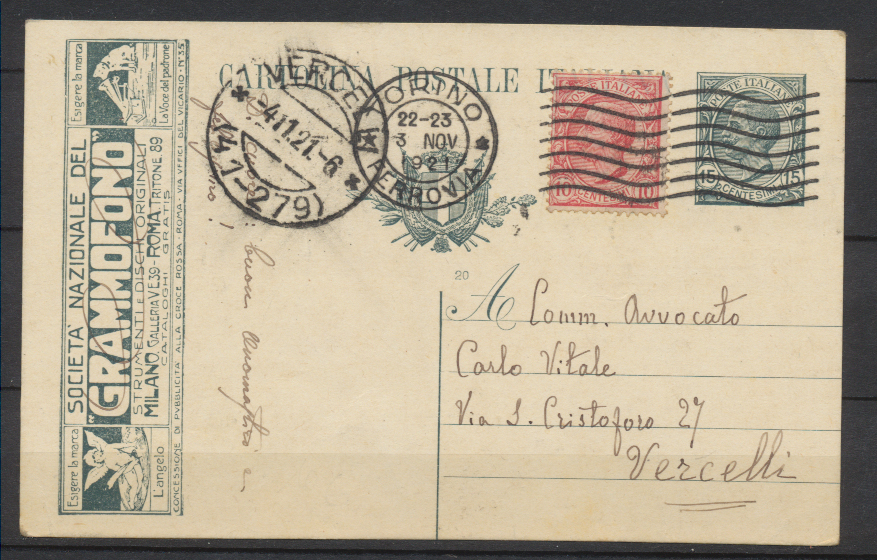 CARTOLINA POSTALE ITALIANA
VERCELLI
4.11.21.-6
(41-279)
TORINO
22-23
3 NOV
1921
FERROVIA
POSTE ITALIANE
10 CENTESIMI 10
POSTE ITALIANE
15 CENTESIMI 15
20
A Comm. Avvocato
Carlo Vitale
Via S. Cristoforo 27
Vercelli
buon onomastico e
Esigere la marca
La Voce del padrone
SOCIETÀ NAZIONALE DEL
"GRAMMOFONO"
STRUMENTI E DISCHI ORIGINALI
MILANO, GALLERIA V.E.39 - ROMA, TRITONE 89
CATALOGHI GRATIS
CONCESSIONE DI PUBBLICITÀ ALLA CROCE ROSSA - ROMA - VIA UFFICI DEL VICARIO - N° 35
Esigere la marca
L'angelo